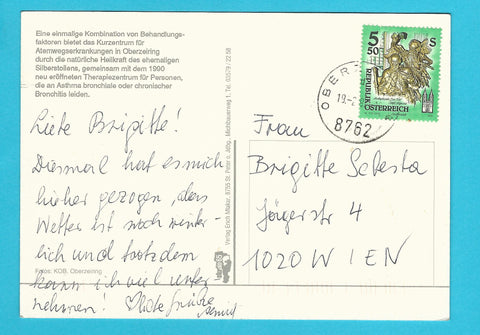 Eine einmalige Kombination von Behandlungs-
faktoren bietet das Kurzentrum für
Atemwegserkrankungen in Oberzeiring
durch die natürliche Heilkraft des ehemaligen
Silberstollens, gemeinsam mit dem 1990
neu eröffneten Therapiezentrum für Personen,
die an Asthma bronchiale oder chronischer
Bronchitis leiden.
Liebe Brigitte!
Diesmal hat es mich
hierher gezogen, das
Wetter ist noch winter-
lich und trotzdem
kann ich viel unter
nehmen! Liebe Grüße
Fotos: KOB, Oberzeiring
Verlag Erich Mlakar, 8755 St. Peter o. Jdbg., Möchbauerweg 1, Tel. 03579 / 22 58
5
50
S
REPUBLIK
ÖSTERREICH
OBER
19.-2.
8762
Frau
Brigitte Sebesta
Jägerstr 4
1020 WIEN